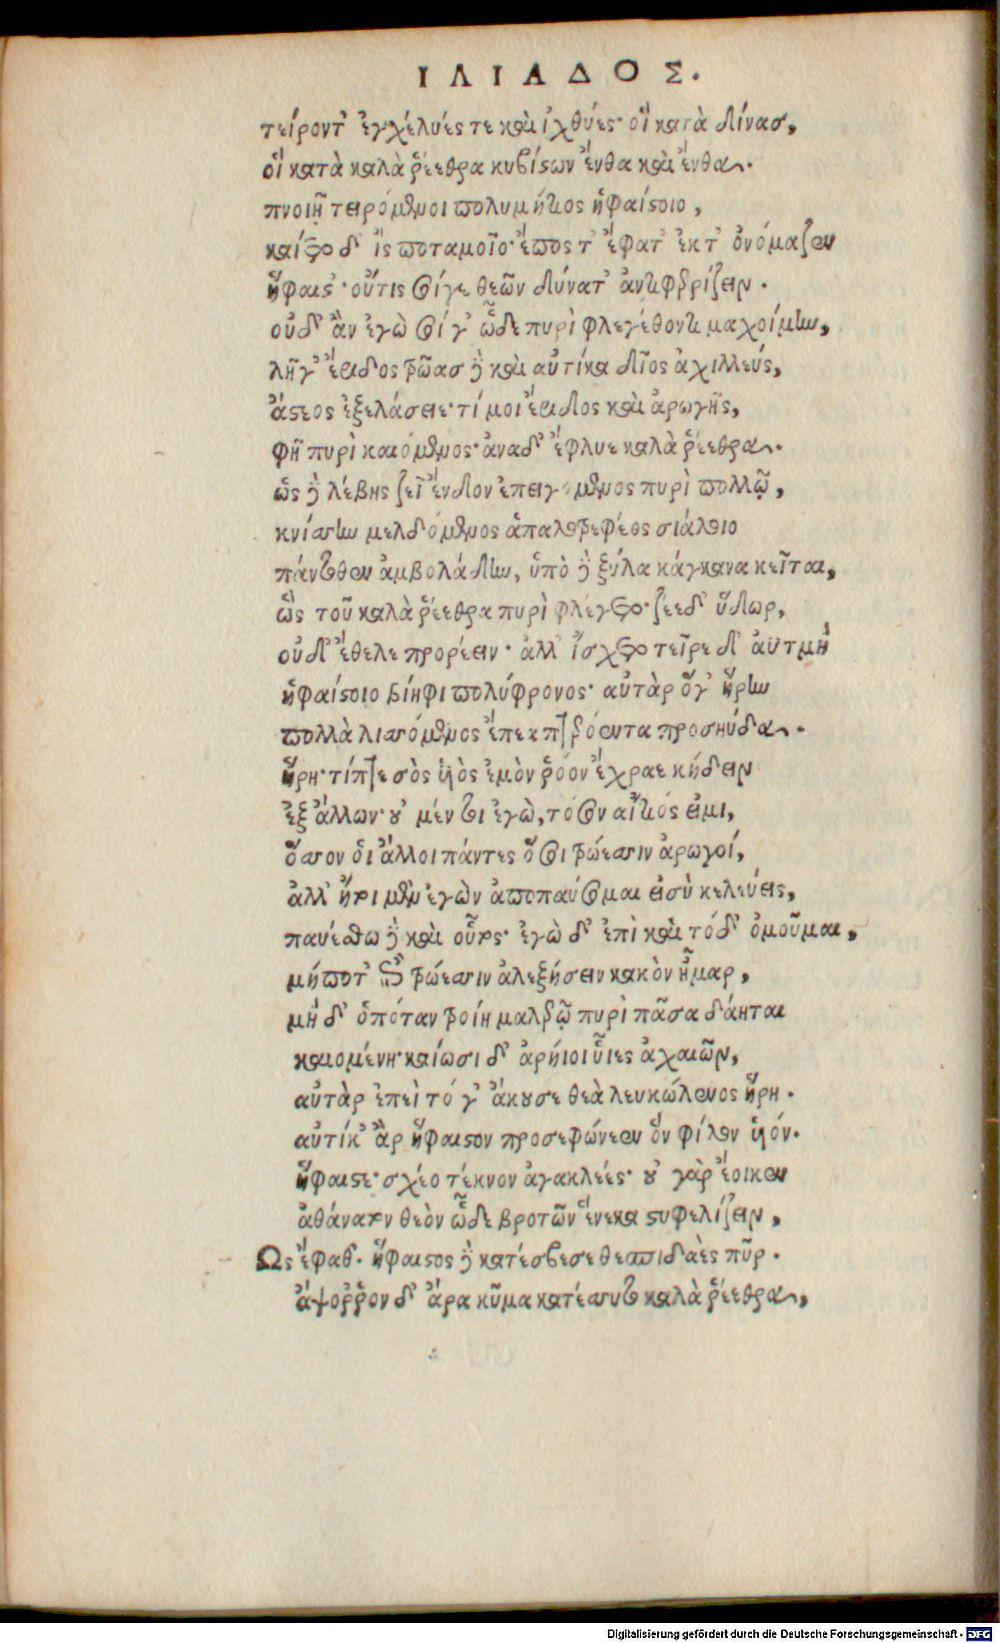 ΙΛΙΑΔΟΣ.
τείροντ᾽ ἐγχέλυές τε καὶ ἰχθύες· οἳ κατὰ δίνασ,
οἳ κατὰ καλὰ ῥέεθρα κυβίστων ἔνθα καὶ ἔνθα.
πνοιῇ τειρόμενοι πολυμήτιος ἡφαίστοιο,
καίετο δ᾽ ἲς ποταμοῖο· ἔπος τ᾽ ἔφατ᾽ ἐκ τ᾽ ὀνόμαζεν
ἥφαιστ᾽· οὔτις σοίγε θεῶν δύνατ᾽ ἀντιφερίζειν.
οὐδ᾽ ἂν ἐγὼ σοί γ᾽ ὧδε πυρὶ φλεγέθοντι μαχοίμην,
λῆγ᾽ ἔριδος τρῶασ δὲ καὶ αὐτίκα δῖος ἀχιλλεύς,
ἄστεος ἐξελάσειε· τί μοι ἔριδος καὶ ἀρωγῆς,
φῆ πυρὶ καιόμενος· ἀνα δ᾽ ἔφλυε καλὰ ῥέεθρα.
ὡς δὲ λέβης ζεῖ ἔνδον ἐπειγόμενος πυρὶ πολλῷ,
κνίσσην μελδόμενος ἁπαλοτρεφέος σιάλοιο
πάντοθεν ἀμβολάδην, ὑπὸ δὲ ξύλα κάγκανα κεῖται,
ὣς τοῦ καλὰ ῥέεθρα πυρὶ φλέγετο· ζέε δ᾽ ὕδωρ,
οὐδ᾽ ἔθελε προρέειν· ἀλλ᾽ ἴσχετο τεῖρε δ᾽ ἀϋτμὴ
ἡφαίστοιο βίηφι πολύφρονος· αὐτὰρ ὅγ᾽ ἥρην
πολλὰ λισσόμενος ἔπεα πτερόεντα προσηύδα.
ἥρη· τίπτε σὸς υἱὸς ἐμὸν ῥόον ἔχραε κήδειν
ἐξ ἄλλων· οὐ μέν τι ἐγὼ, τόσον αἴτιός εἰμι,
ὅσσον οἱ ἄλλοι πάντες ὅσοι τρώεσσιν ἀρωγοί,
ἀλλ᾽ ἤτοι μὲν ἐγὼν ἀποπαύσομαι εἰ σὺ κελεύεις,
παυέσθω δὲ καὶ οὗτος· ἐγὼ δ᾽ ἐπὶ καὶ τόδ᾽ ὀμοῦμαι,
μήποτ᾽ ἐπὶ τρώεσσιν ἀλεξήσειν κακὸν ἦμαρ,
μὴ δ᾽ ὁπόταν τροίη μαλερῷ πυρὶ πᾶσα δάηται
καιομένη· καίωσι δ᾽ ἀρήϊοι υἷες ἀχαιῶν,
αὐτὰρ ἐπεὶ τό γ᾽ ἄκουσε θεὰ λευκώλενος ἥρη.
αὐτίκ᾽ ἂρ ἥφαιστον προσεφώνεεν ὃν φίλον υἱόν.
ἥφαιστε· σχέο τέκνον ἀγακλεές· οὐ γὰρ ἔοικεν
ἀθάνατον θεὸν ὧδε βροτῶν ἕνεκα στυφελίζειν,
Ως ἔφαθ᾽. ἥφαιστος δὲ κατέσβεσε θεσπιδαὲς πῦρ.
ἄψορρον δ᾽ ἄρα κῦμα κατέσσυτο καλὰ ῥέεθρα,
Digitalisierung gefördert durch die Deutsche Forschungsgemeinschaft - DFG